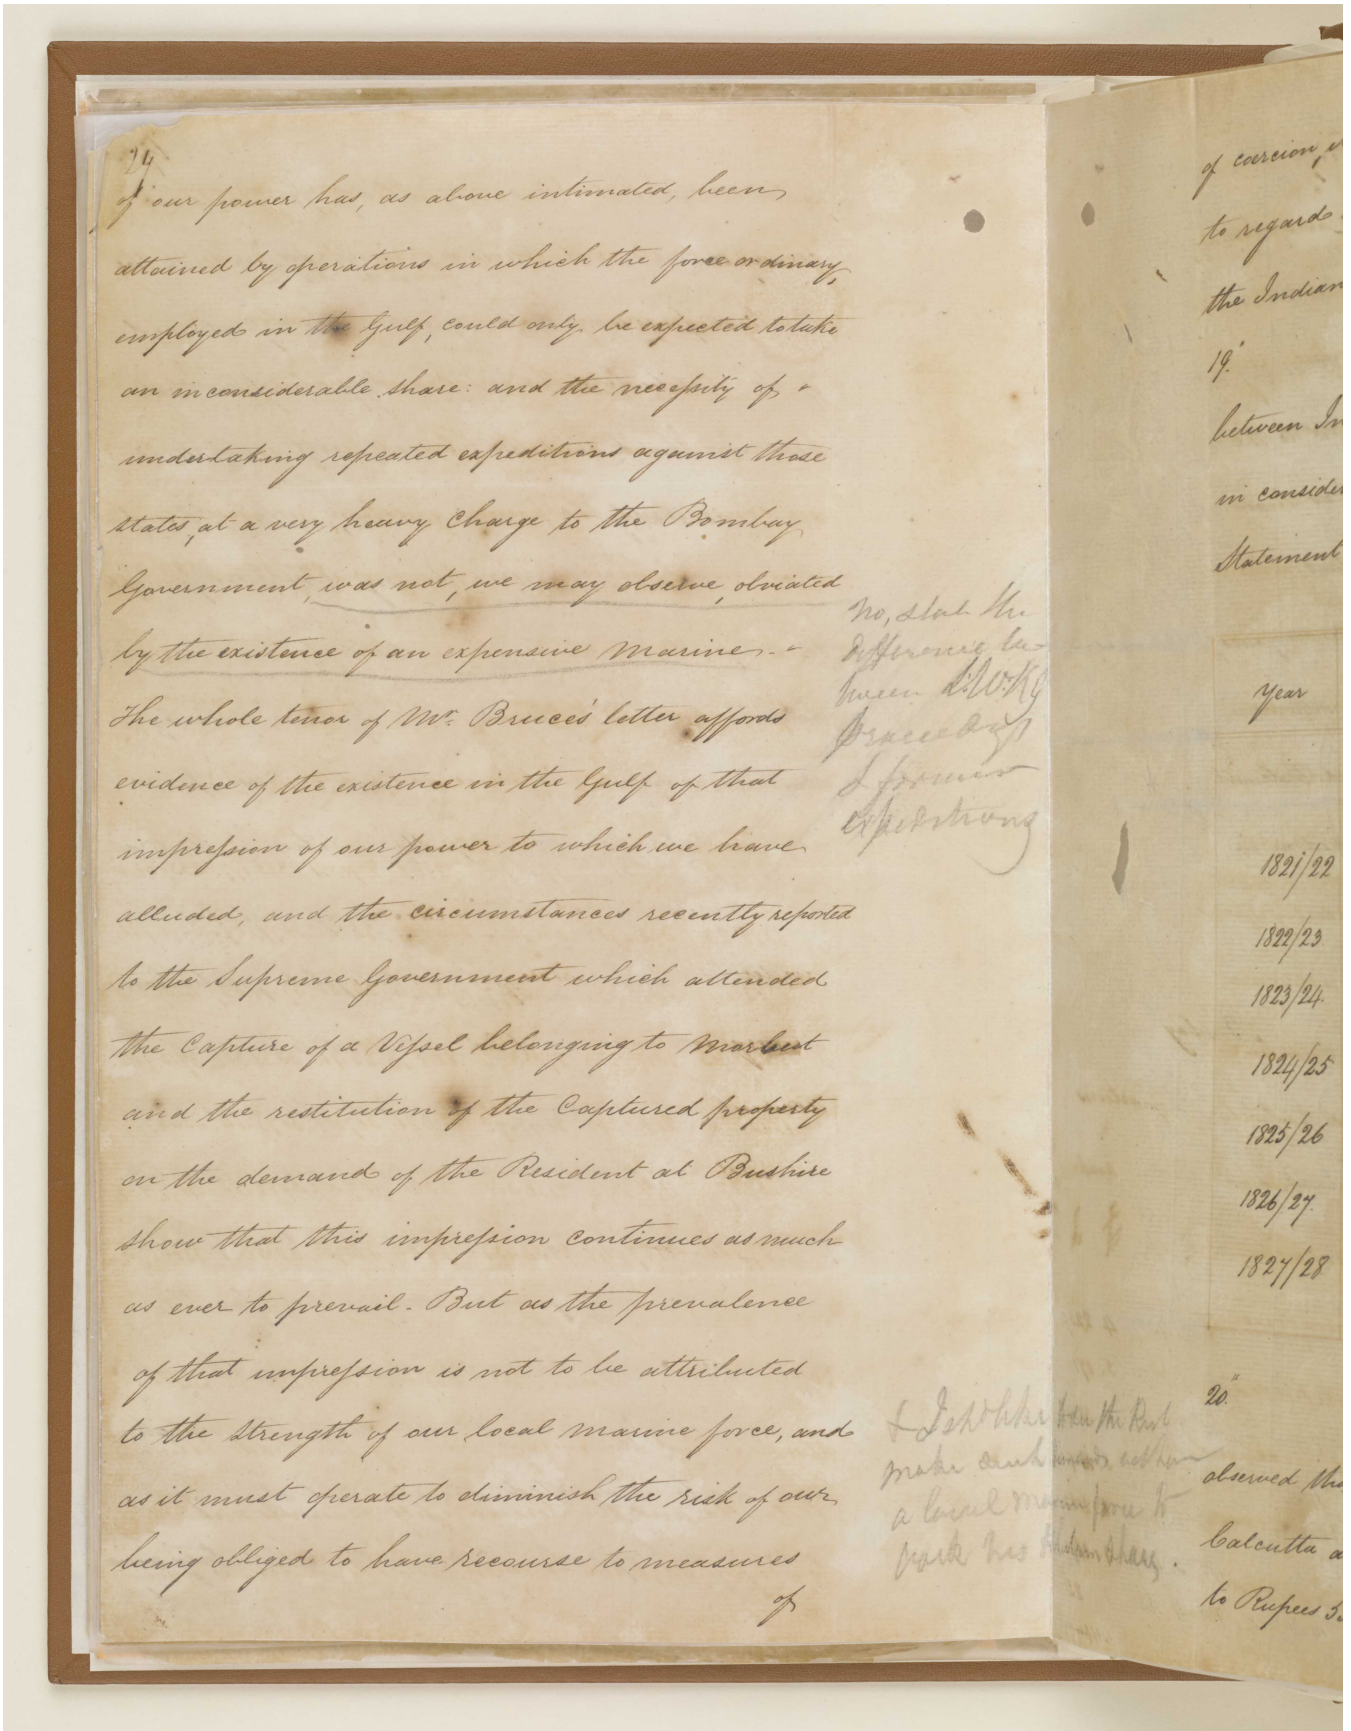 24
of our power has, as above intimated, been
attained by operations in which the force ordinary
employed in the Gulf, could only be expected to take
an inconsiderable share: and the necessity of
undertaking repeated expeditions against those
states, at a very heavy Charge to the Bombay
Government, was not, we may observe, obviated
by the existence of an expensive Marine. -
The whole tenor of Mr. Bruce's letter affords
evidence of the existence in the Gulf of that
impression of our power to which we have
alluded, and the circumstances recently reported
to the Supreme Government which attended
the Capture of a Vessel belonging to Morbut
and the restitution of the Captured property
on the demand of the Resident at Bushire
show that this impression continues as much
as ever to prevail. But as the prevalence
of that impression is not to be attributed
to the Strength of our local marine force, and
as it must operate to diminish the risk of our
being obliged to have recourse to measures
of
No, state the
difference be-
tween
proceedings
& former
expeditions
make such
a local force to
back his
of coercion,
to regard
the Indian
19.
between
in
Statement
Year
1821/22
1822/23
1823/24
1824/25
1825/26
1826/27
1827/28
20.
observed
Calcutta
to Rupees